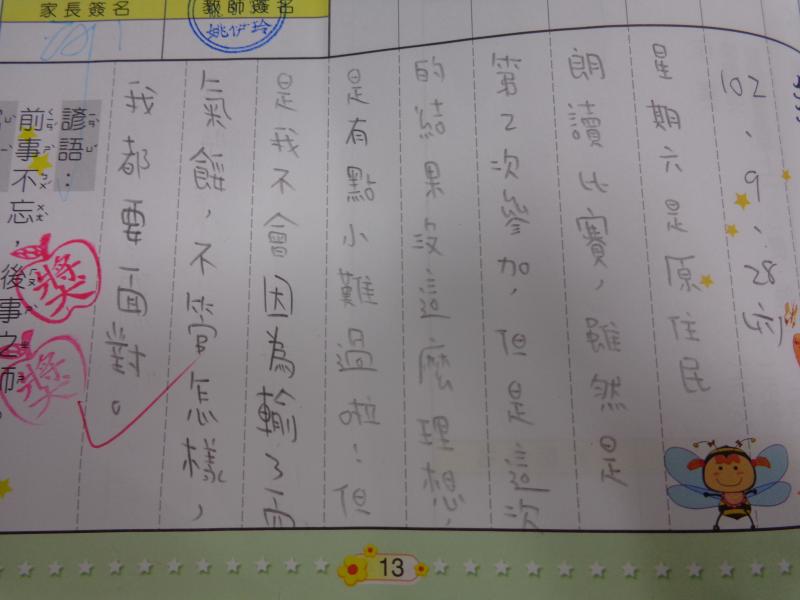 家長簽名
教師簽名
姚伊玲
102.9.28(六)
星期六是原住民
朗讀比賽,雖然是
第2次參加,但是這次
的結果沒這麼理想,
是有點小難過啦!但
是我不會因為輸了而
氣餒,不管怎樣,
我都要面對。
諺語:
前事不忘,
後事之師。
獎
獎
13